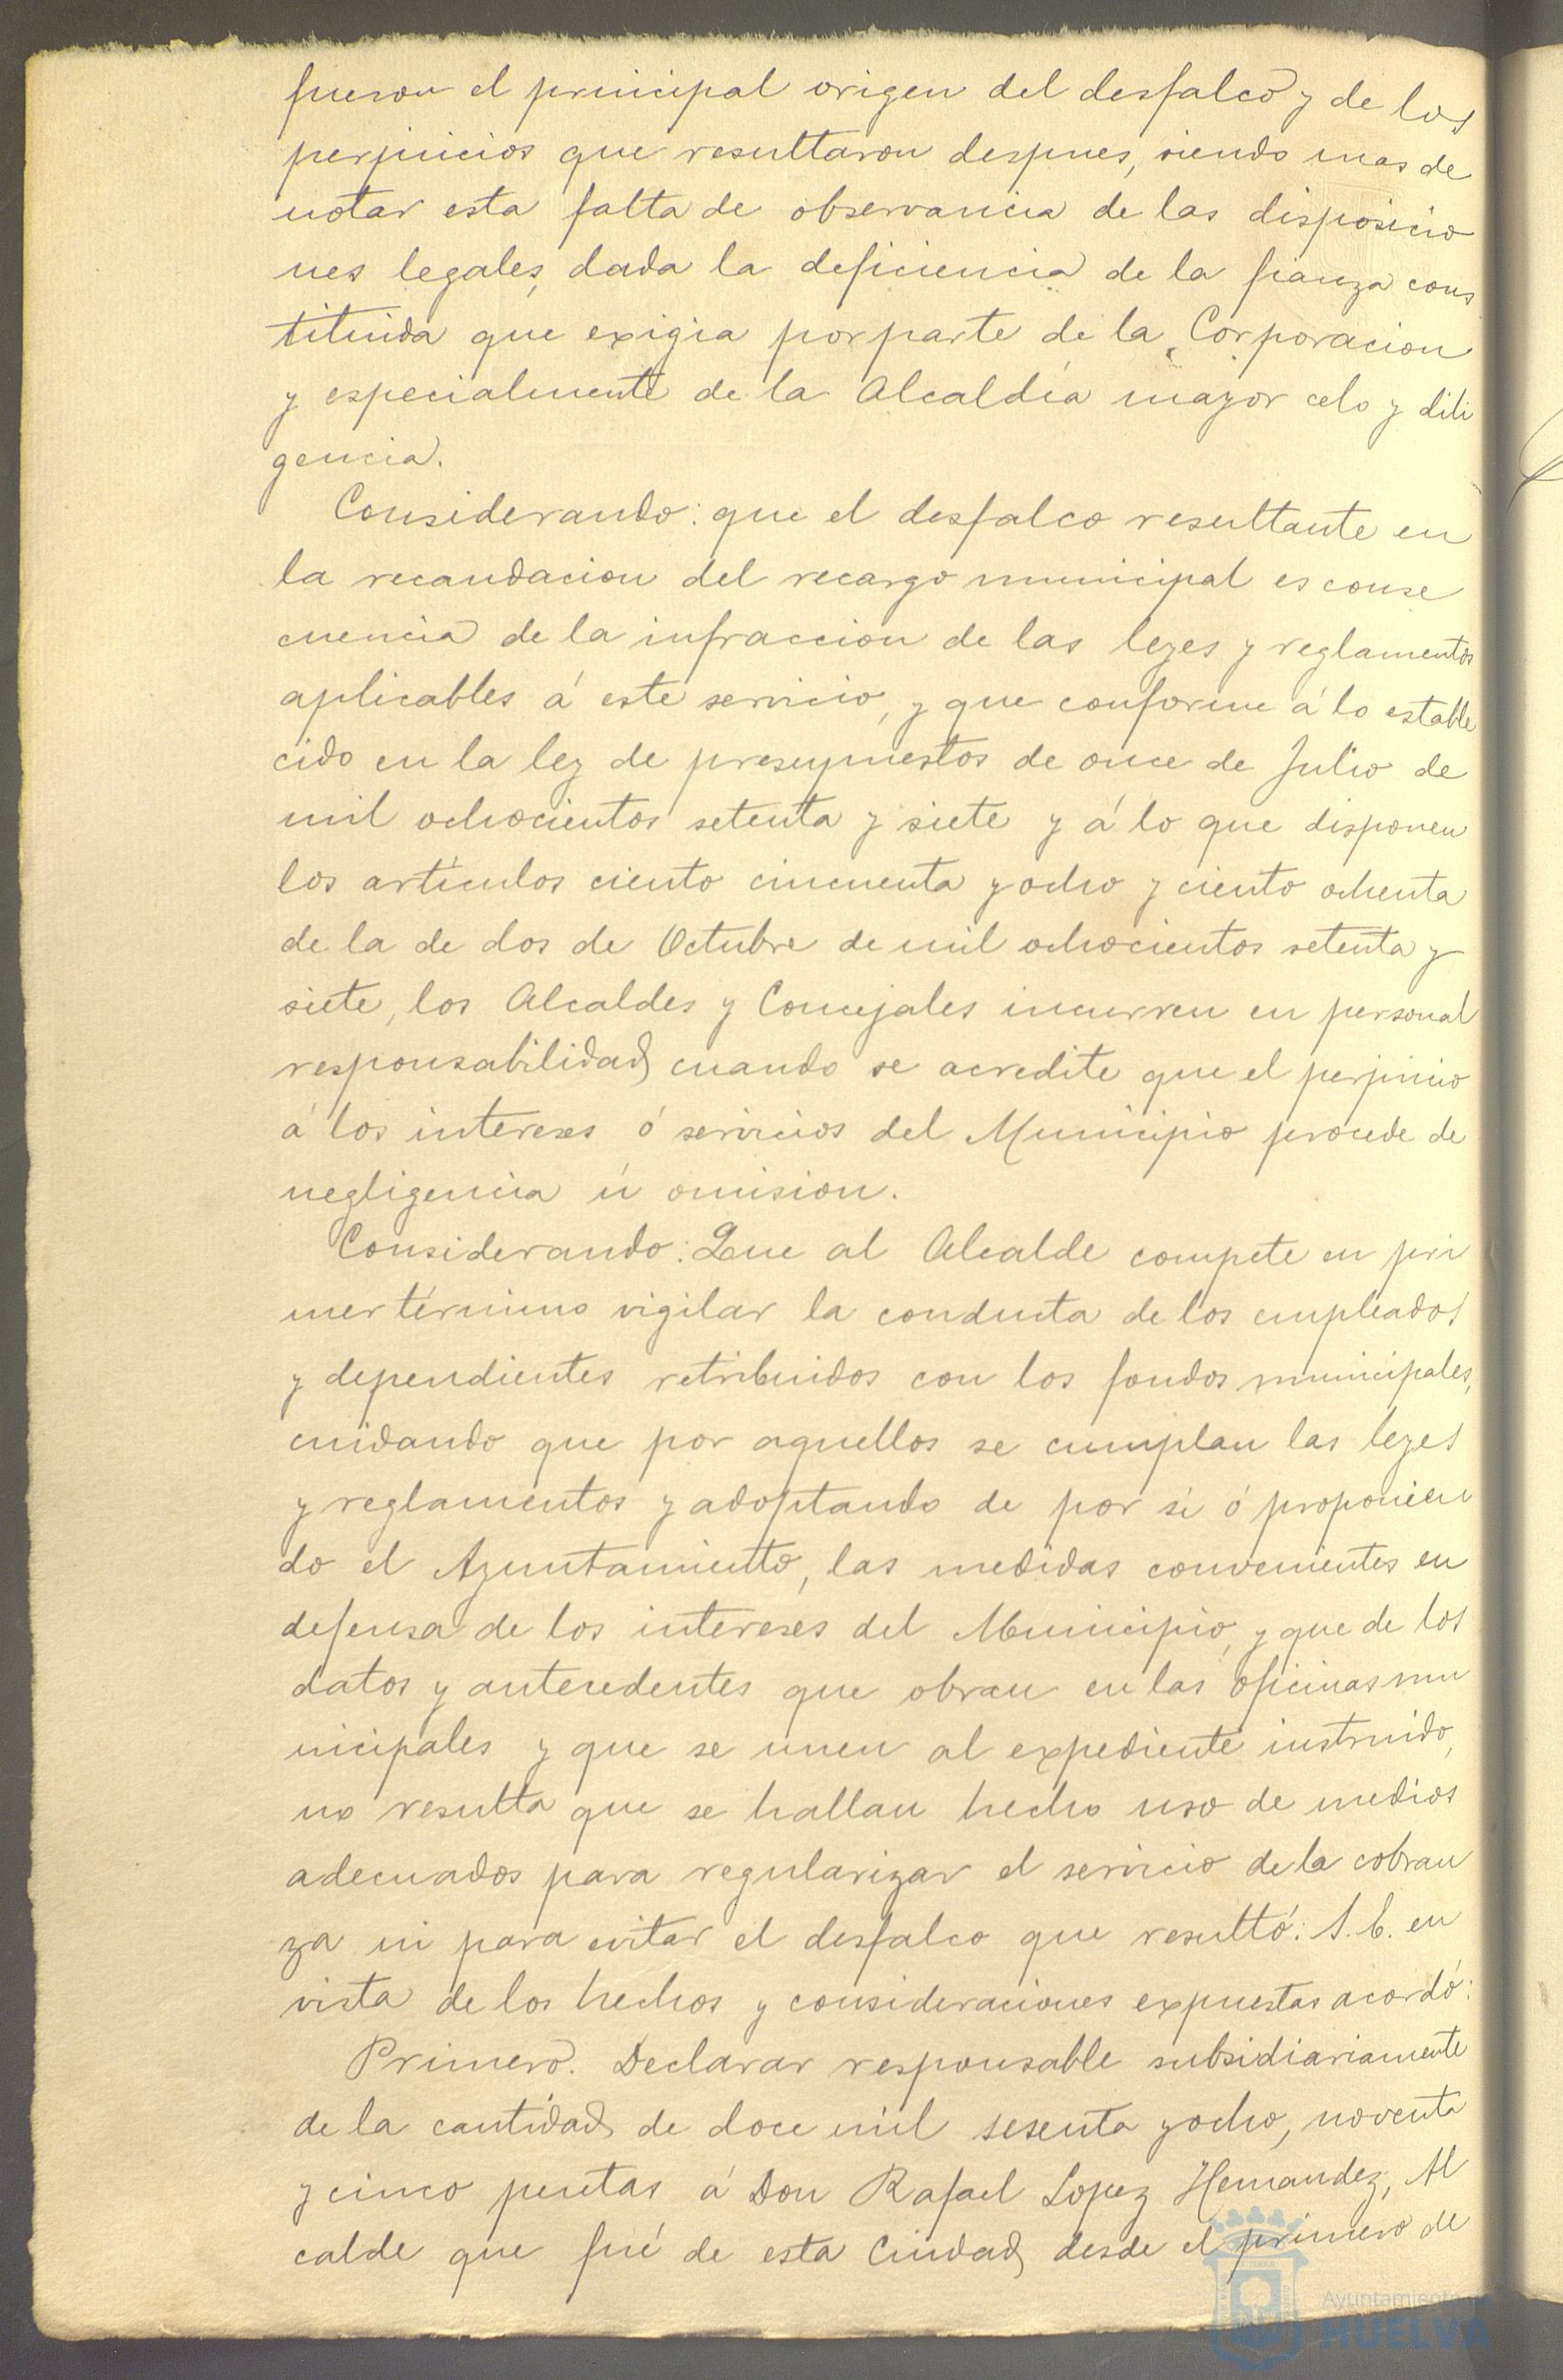 fueron el principal origen del desfalco y de los
perjuicios que resultaron despues, siendo mas de
notar esta falta de observancia de las disposicio
nes legales, dada la deficiencia de la fianza cons
tituida que exigia por parte de la Corporacion
y especialmente de la Alcaldía mayor celo y dili
gencia.
Considerando: que el desfalco resultante en
la recaudacion del recargo municipal es conse
cuencia de la infraccion de las leyes y reglamentos
aplicables á este servicio, y que conforme á lo estable
cido en la ley de presupuestos de once de Julio de
mil ochocientos setenta y siete y á lo que disponen
los artículos ciento cincuenta y ocho y ciento ochenta
de la de dos de Octubre de mil ochocientos setenta y
siete, los Alcaldes y Concejales incurren en personal
responsabilidad cuando se acredite que el perjuicio
á los intereses ó servicios del Municipio procede de
negligencia ú omision.
Considerando: Que al Alcalde compete en pri
mer término vigilar la conducta de los empleados
y dependientes retribuidos con los fondos municipales,
cuidando que por aquellos se cumplan las leyes
y reglamentos y adoptando de por sí ó proponien
do el Ayuntamiento, las medidas convenientes en
defensa de los intereses del Municipio, y que de los
datos y antecedentes que obran en las oficinas mu
nicipales y que se unen al expediente instruido,
no resulta que se hallan hecho uso de medios
adecuados para regularizar el servicio de la cobran
za ni para evitar el desfalco que resultó: S. E. en
vista de los hechos y consideraciones expuestas acordó:
Primero. Declarar responsable subsidiariamente
de la cantidad de doce mil sesenta y ocho, noventa
y cinco pesetas á Don Rafael Lopez Hernandez, Al
calde que fué de esta Ciudad desde el primero de
Ayuntamiento
HUELVA